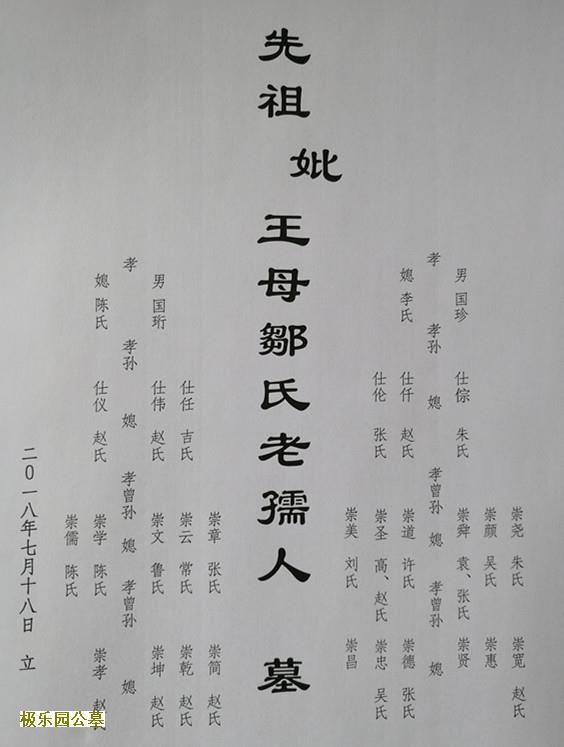 崇尧 朱氏 崇宽 赵氏
崇颜 吴氏 崇惠
男 国珍 仕倧 朱氏 崇舜 袁、张氏 崇贤
孝 孝孙 媳 孝曾孙 媳 孝曾孙 媳
媳 李氏 仕仟 赵氏 崇道 许氏 崇德 张氏
仕伦 张氏 崇圣 高、赵氏 崇忠 吴氏
崇美 刘氏 崇昌
先祖妣王母鄒氏老孺人 墓
崇章 张氏 崇简 赵氏
仕任 吉氏 崇云 常氏 崇乾 赵氏
男 国珩 仕伟 赵氏 崇文 鲁氏 崇坤 赵氏
孝 孝孙 媳 孝曾孙 媳 孝曾孙 媳
媳 陈氏 仕仪 赵氏 崇学 陈氏 崇孝 赵氏
崇儒 陈氏
二〇一八年七月十八日 立
极乐园公墓